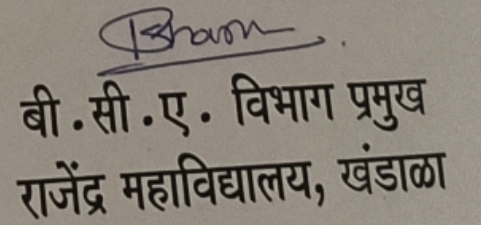 बी.सी.ए. विभाग प्रमुख
राजेंद्र महाविद्यालय, खंडाळा